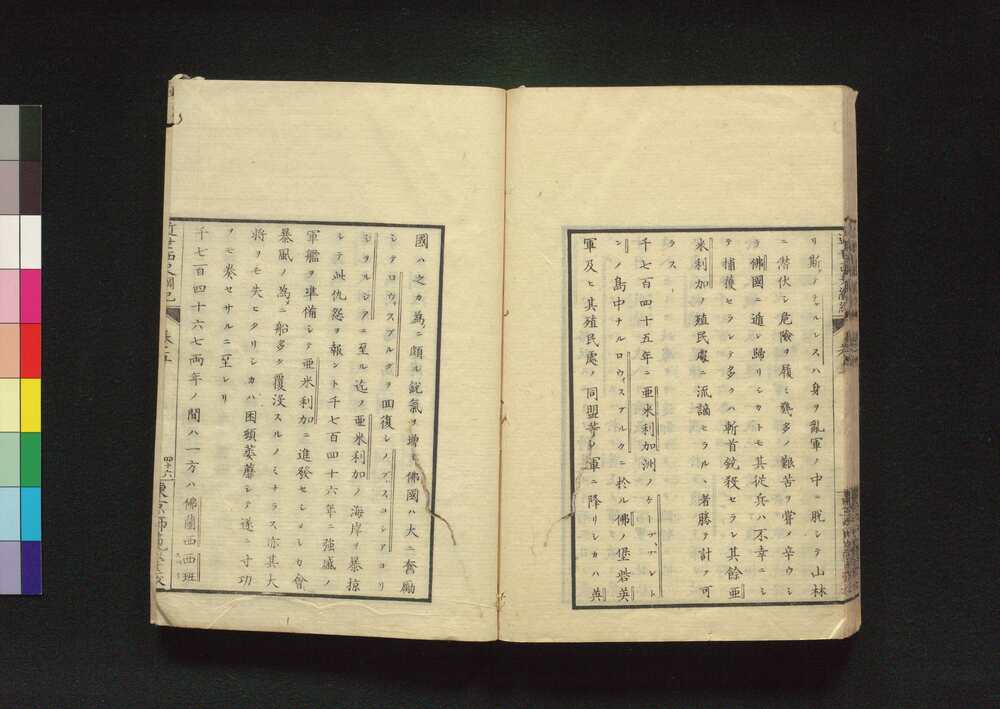 リ斯ノチャルレスハ身ヲ亂軍ノ中ニ脱シテ山林
ニ潛伏シ危險ヲ履ミ幾多ノ艱苦ヲ嘗メ辛ウシ
テ佛國ニ遁レ歸リシカトモ其從兵ハ不幸ニシ
テ捕獲セラレテ多クハ斬首銃殺セラレ其餘亜
米利加ノ殖民處ニ流謫セラル、者勝テ計フ可
ラス
千七百四十五年ニ亜米利加洲ノケープブレト
ンノ島中ナルロウィスブルクニ於ル佛ノ堡砦英
軍及ヒ其殖民處ノ同盟軍ニ降リシカハ英
國ハ之カ為ニ頗ル鋭氣ヲ増セ佛國ハ大ニ奮勵
シテロウィスブルクヲ回復シノブスコシアヨリ
ジヲルジアニ至ル迄ノ亜米利加ノ海岸ヲ暴掠
シテ此仇怨ヲ報ント千七百四十六年ニ強盛ノ
軍艦ヲ準備シテ亜米利加ニ進發セシメシカ會
暴風ノ為ニ船多ク覆沒スルノミナラス亦其大
將ヲモ失ヒタリシカハ困頓萎靡シテ遂ニ寸功
ヲモ奏セサルニ至レリ
千七百四十六七兩年ノ間ハ一方ハ佛蘭西西班
近世西史綱紀
卷十五
四十六